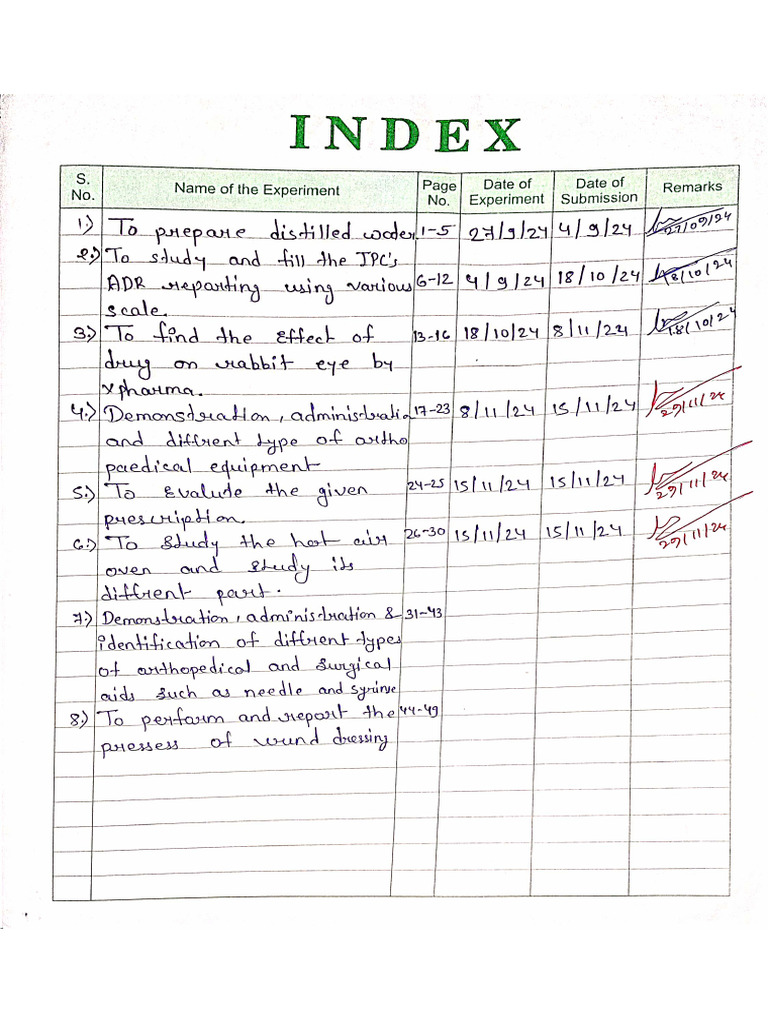 INDEX
S. No. Name of the Experiment Page No. Date of Experiment Date of Submission Remarks
1.) To prepare distilled water. 1-5 27/9/24 4/9/24 27/09/24
2.) To study and fill the IPC's 
ADR reporting using various 6-12 4/9/24 18/10/24 18/10/24
scale.
3.) To find the effect of 13-16 18/10/24 8/11/24 18/10/24
drug on rabbit eye by
xpharma.
4.) Demonstration, administratio 17-23 8/11/24 15/11/24 29/11/24
and diffrent type of ortho
paedical equipment
5.) To evalute the given 24-25 15/11/24 15/11/24 29/11/24
prescription.
6.) To study the hot air 26-30 15/11/24 15/11/24 29/11/24
oven and study its
diffrent part.
7.) Demonstration, administration & 31-43
identification of diffrent types
of orthopedical and surgical
aids such as needle and syrinve
8.) To perform and report the 44-49
pressess of wund dressing